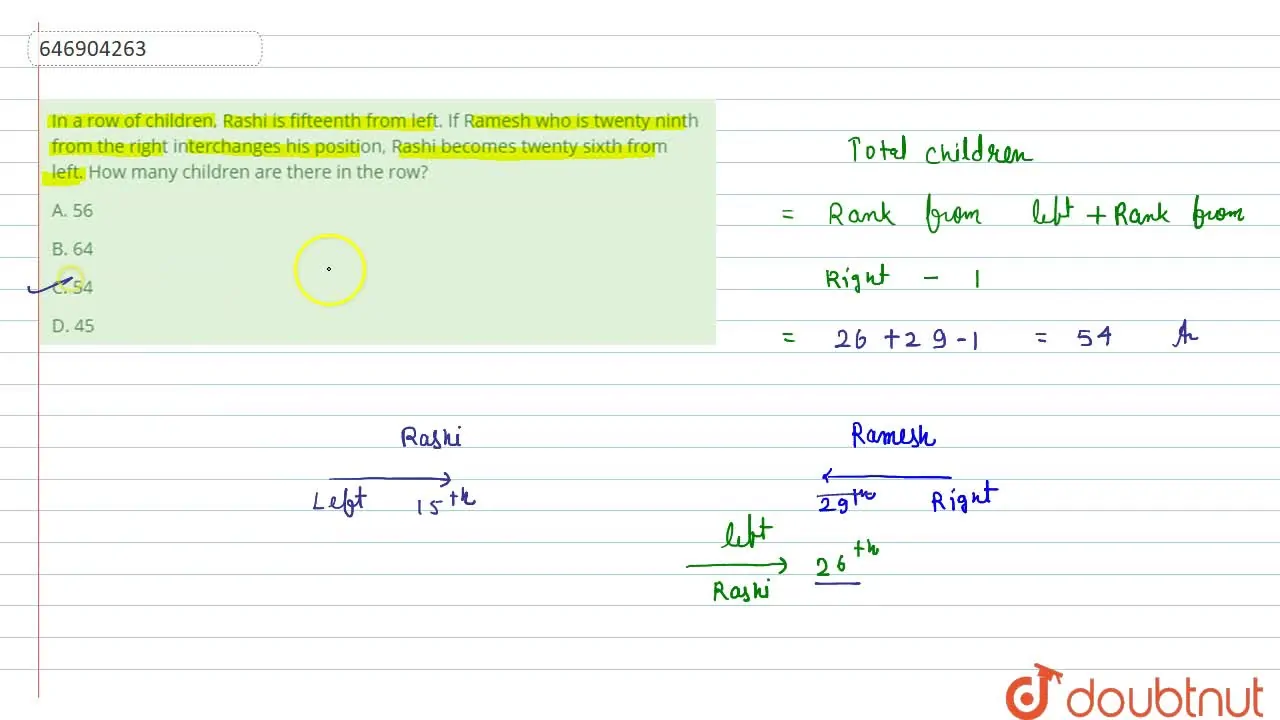 646904263
In a row of children, Rashi is fifteenth from left. If Ramesh who is twenty ninth
from the right interchanges his position, Rashi becomes twenty sixth from
left. How many children are there in the row?
A. 56
B. 64
C. 54
D. 45
Total children
= Rank from left + Rank from
Right - 1
= 26 + 29 - 1 = 54
Rashi
Left 15th
Ramesh
29th Right
left
26th
Rashi
doubtnut